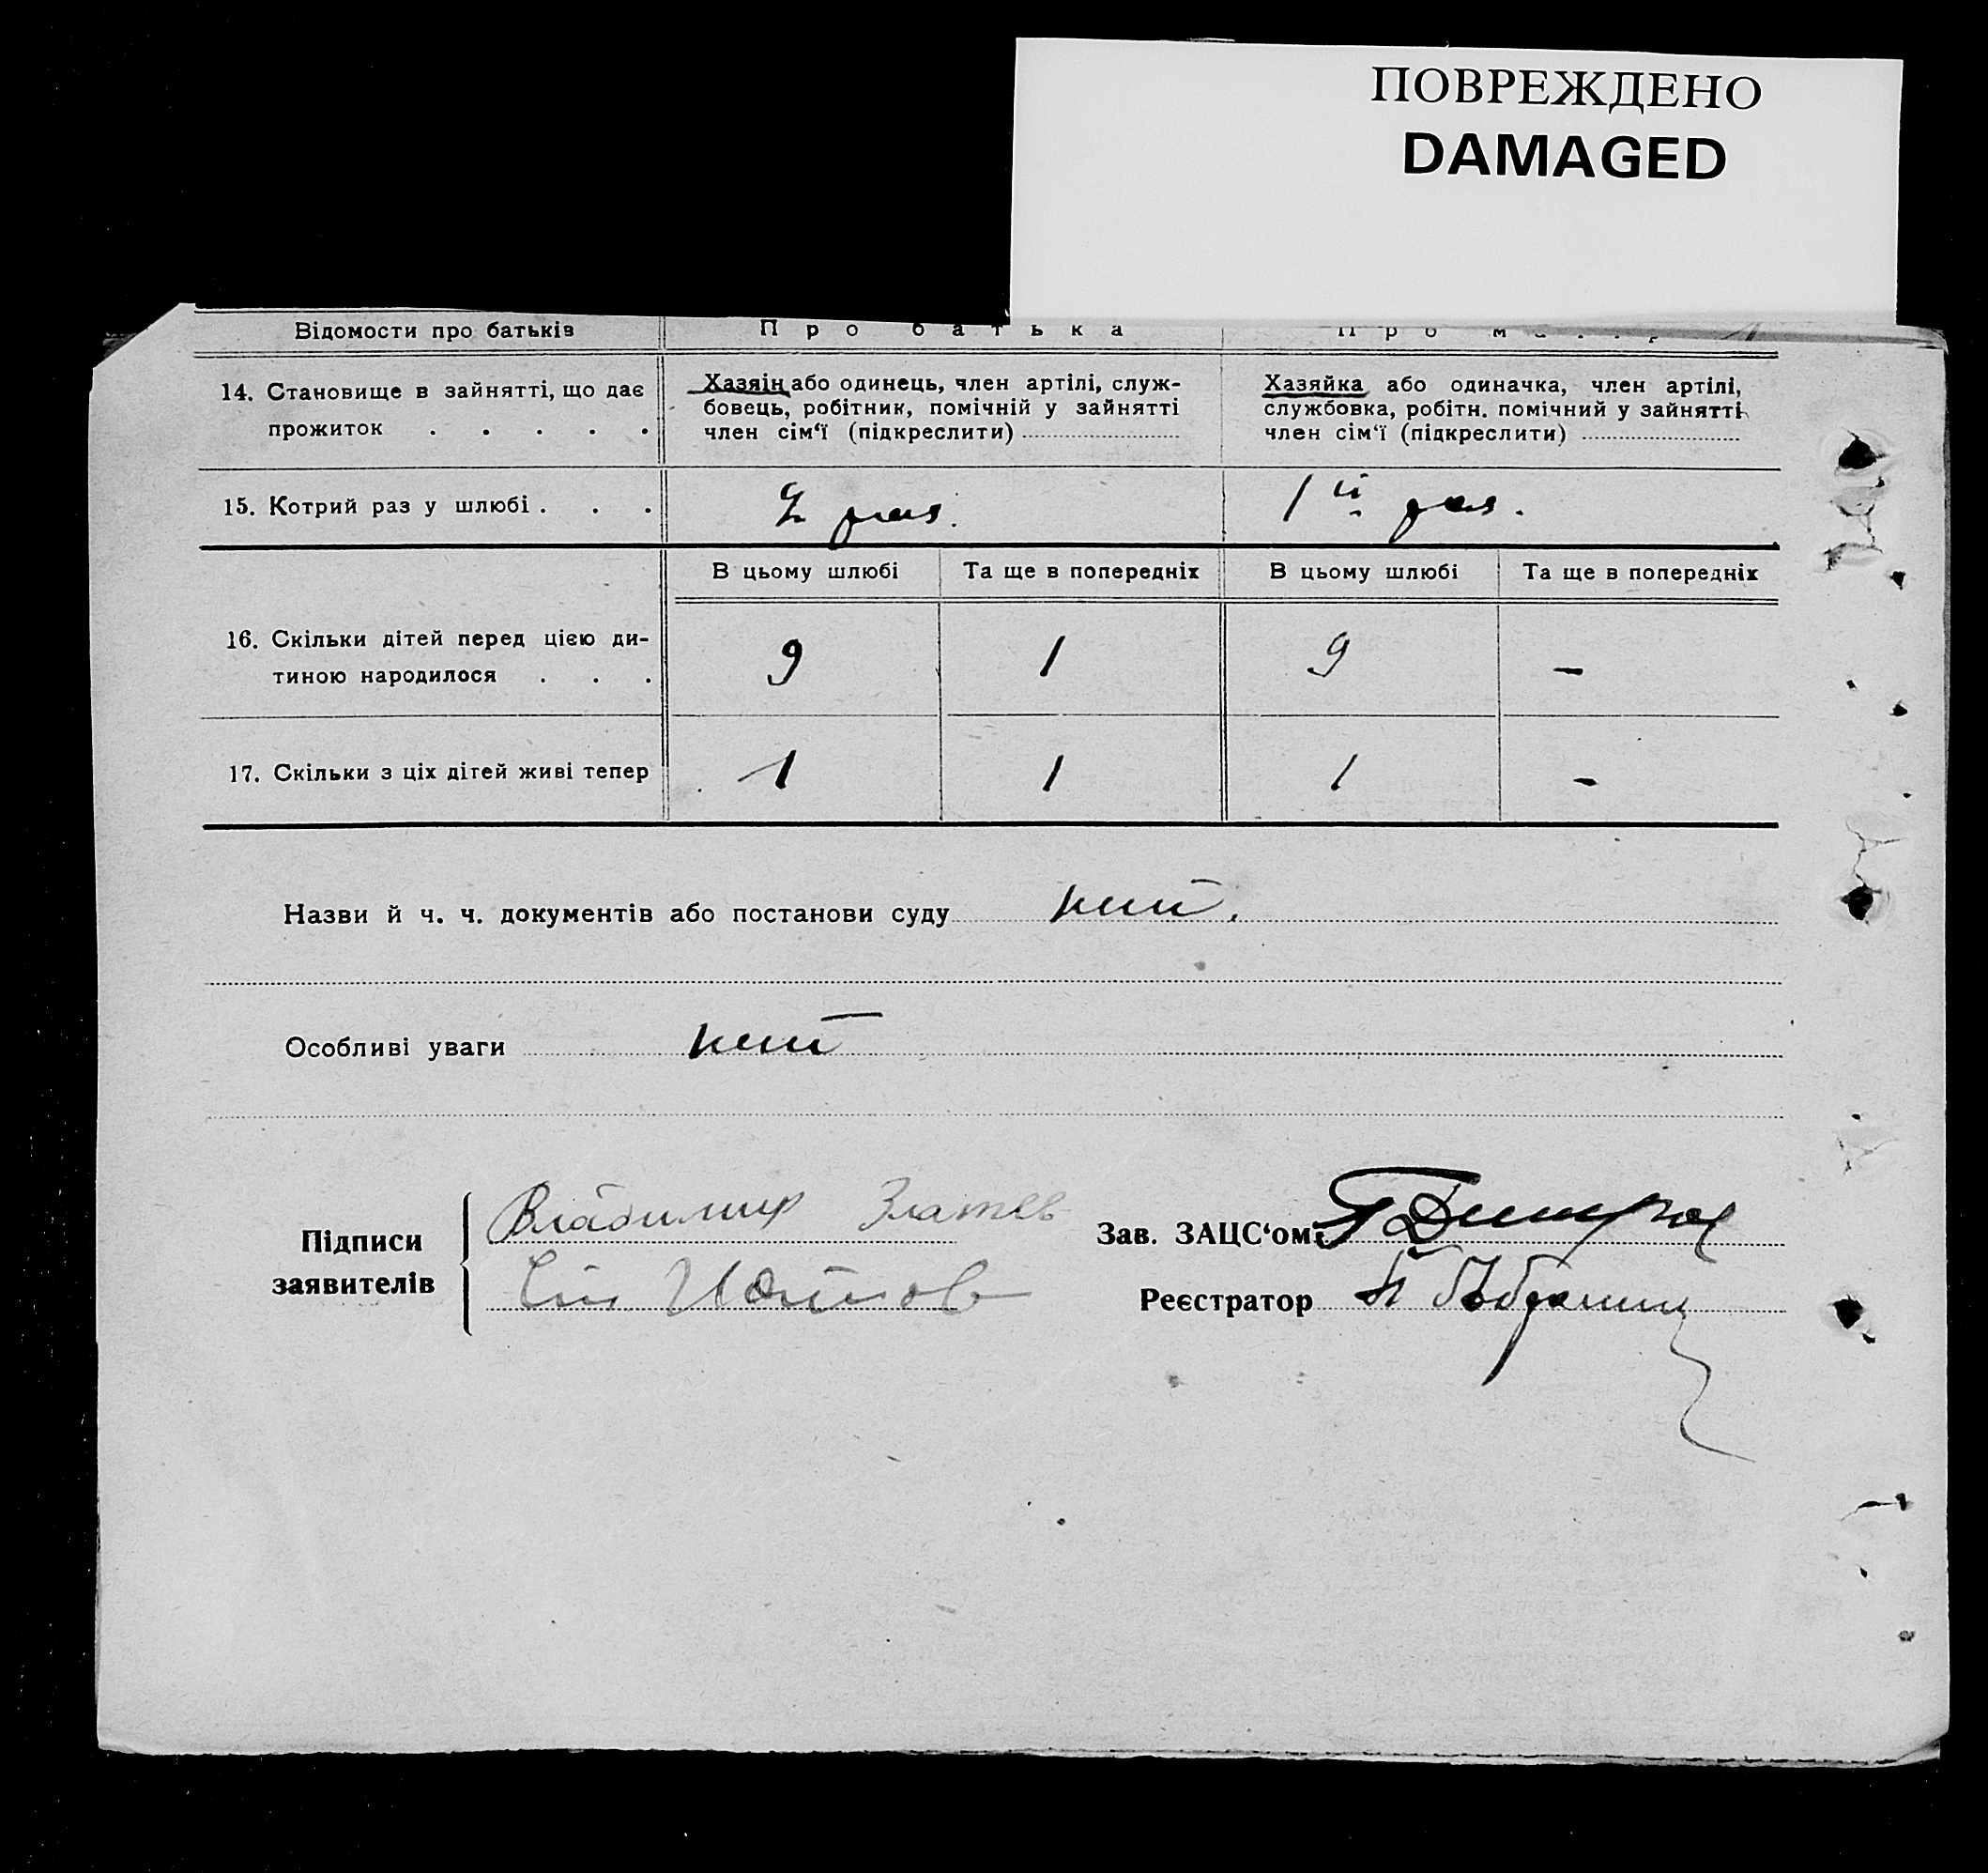 ПОВРЕЖДЕНО
DAMAGED
Відомости про батьків Про батька
14. Становище в зайнятті, що дає прожиток . . . . .
Хазяін або одинець, член артілі, служ-
бовець, робітник, помічній у зайнятті
член сім‘ї (підкреслити)
Хазяйка або одиначка, член артілі,
службовка, робітн. помічний у зайнятті
член сім‘ї (підкреслити)
15. Котрий раз у шлюбі . . . 2 раз. 1ый раз.
В цьому шлюбі Та ще в попередніх В цьому шлюбі Та ще в попередніх
16. Скільки дітей перед цією ди-
тиною народилося . . . 9 1 9 -
17. Скільки з ціх дітей живі тепер 1 1 1 -
Назви й ч. ч. документів або постанови суду нет.
Особливі уваги нет
Підписи
заявителів
Владимир Златев
Зав. ЗАЦС‘ом
Реєстратор